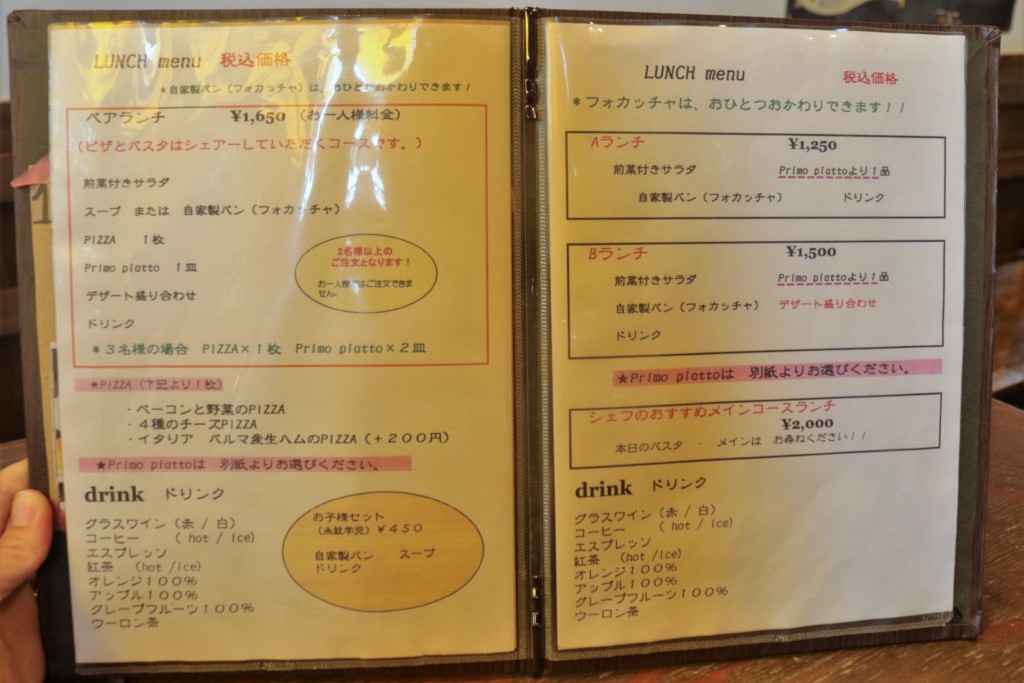 LUNCH menu 税込価格
＊自家製パン（フォカッチャ）は、おひとつおかわりできます！
ペアランチ ¥1,650 （お一人様料金）
（ピザとパスタはシェアーしていただくコースです。）
前菜付きサラダ
スープ または 自家製パン（フォカッチャ）
PIZZA １枚
Primo piatto １皿
デザート盛り合わせ
ドリンク
2名様以上の
ご注文となります！
お一人様ではご注文できま
せん。
＊３名様の場合 PIZZA×１枚 Primo piatto×２皿
★PIZZA（下記より１枚）
・ベーコンと野菜のPIZZA
・４種のチーズPIZZA
・イタリア パルマ産生ハムのPIZZA（＋２００円）
★Primo piattoは 別紙よりお選びください。
drink ドリンク
グラスワイン（赤 / 白）
コーヒー （ hot / ice）
エスプレッソ
紅茶 （hot /ice）
オレンジ１００％
アップル１００％
グレープフルーツ１００％
ウーロン茶
お子様セット
（未就学児）￥４５０
自家製パン スープ
ドリンク
LUNCH menu 税込価格
＊フォカッチャは、おひとつおかわりできます！！
Aランチ ¥1,250
前菜付きサラダ Primo piattoより１品
自家製パン（フォカッチャ） ドリンク
Bランチ ¥1,500
前菜付きサラダ Primo piattoより１品
自家製パン（フォカッチャ） デザート盛り合わせ
ドリンク
★Primo piattoは 別紙よりお選びください。
シェフのおすすめメインコースランチ
¥2,000
本日のパスタ ・ メインは お尋ねください！！
drink ドリンク
グラスワイン（赤 / 白）
コーヒー （ hot / ice）
エスプレッソ
紅茶 （hot /ice）
オレンジ１００％
アップル１００％
グレープフルーツ１００％
ウーロン茶